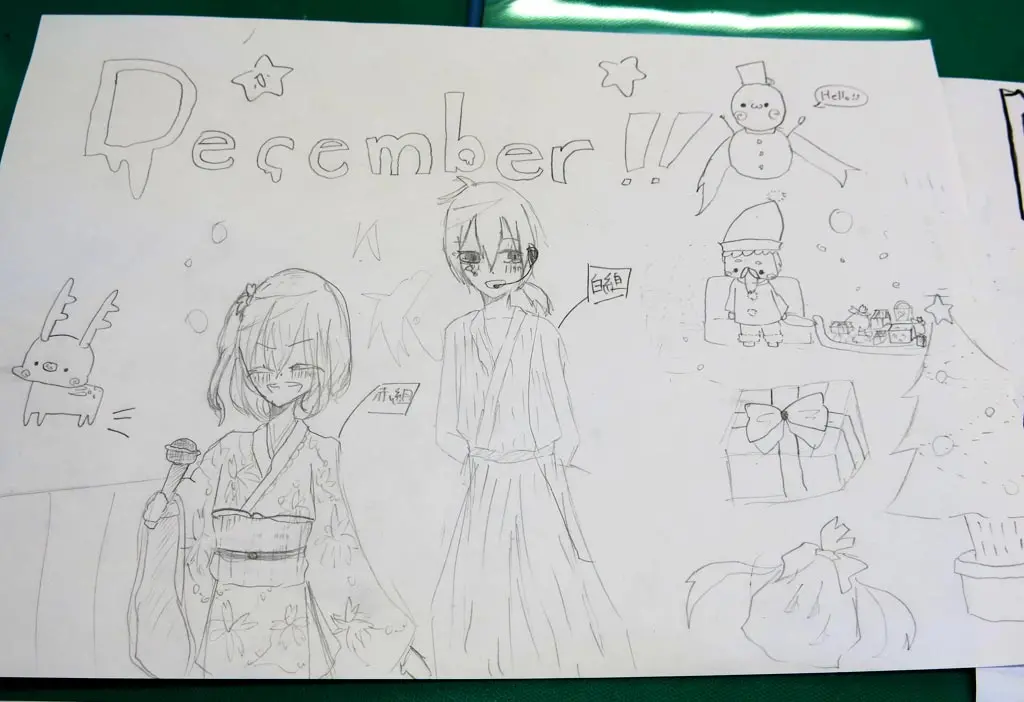 December!!
Hello!!
白組
赤組